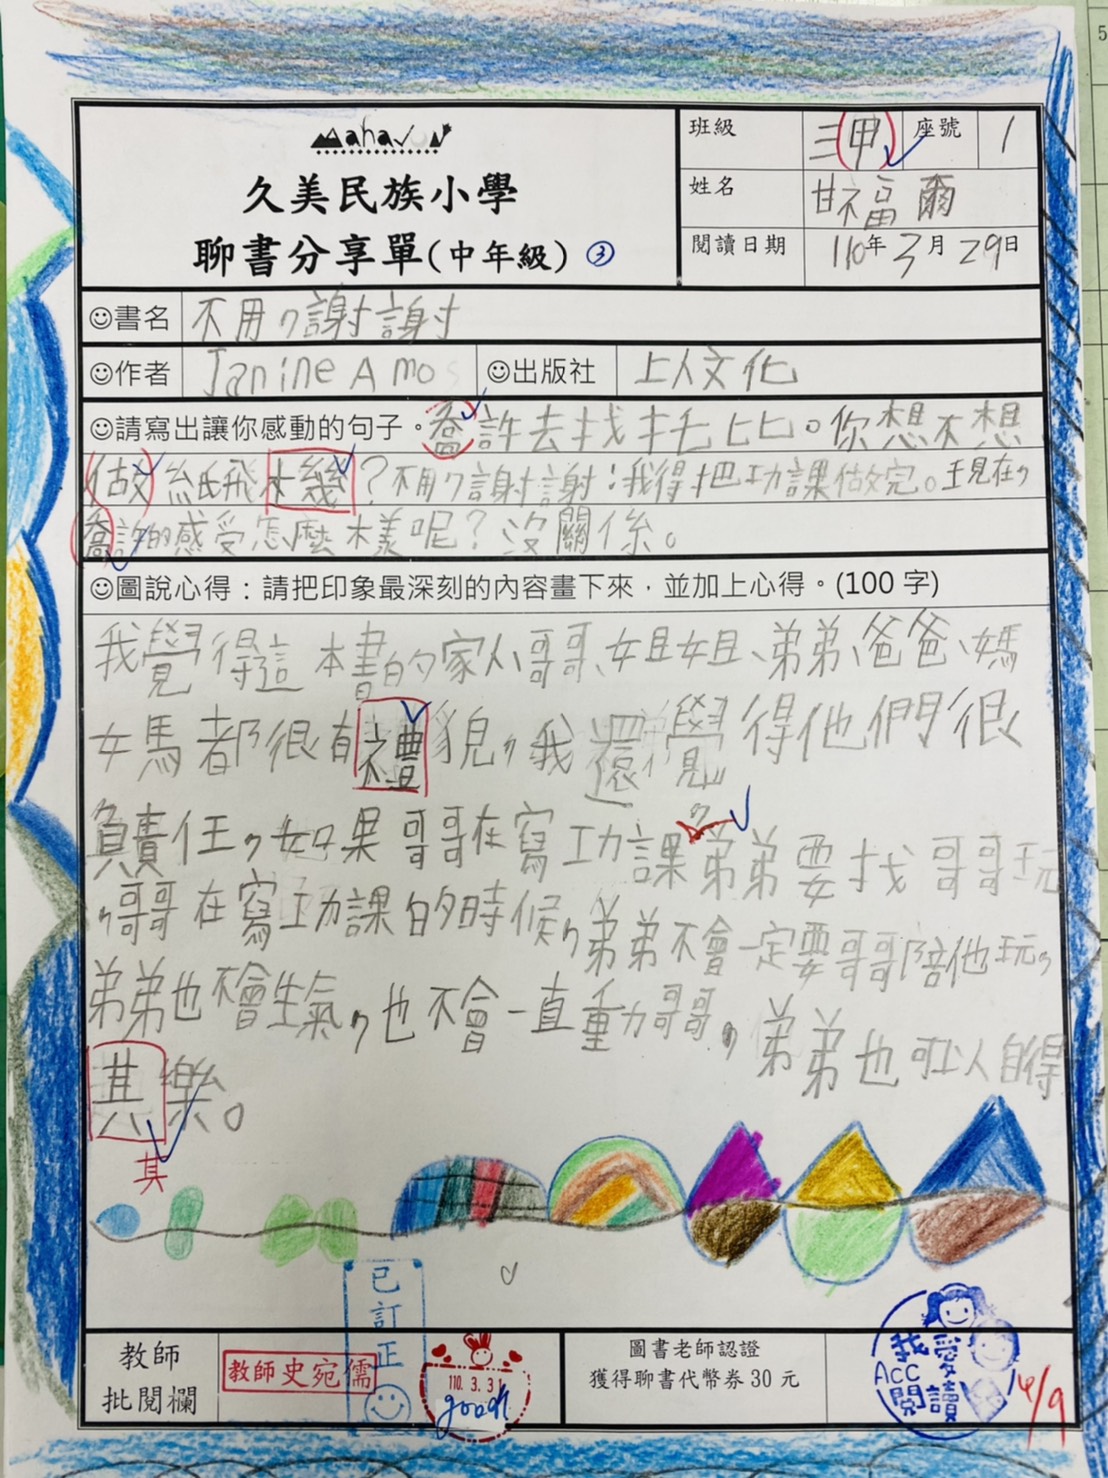 Mahavun
久美民族小學
聊書分享單(中年級) ③
班級 三甲 座號 1
姓名 甘福爾
閱讀日期 110年3月29日
☺書名 不用,謝謝
☺作者 Janine Amos ☺出版社 上人文化
☺請寫出讓你感動的句子。喬許去找托比。你想不想
做紙飛機?不用,謝謝:我得把功課做完。現在,
喬許的感受怎麼樣呢?沒關係。
☺圖說心得:請把印象最深刻的內容畫下來,並加上心得。(100字)
我覺得這本書的家人、哥哥、姐姐、弟弟、爸爸、媽
媽都很有禮貌,我還覺得他們很
負責任,如果哥哥在寫功課,弟弟要找哥哥玩
,哥哥在寫功課的時候,弟弟不會一定要哥哥陪他玩,
弟弟也不會生氣,也不會一直動哥哥,弟弟也可以自得
其樂。
其
已訂正
教師
批閱欄
教師史宛儒
110.3.31
good
圖書老師認證
獲得聊書代幣券30元
我愛
Acc
閱讀
4/9
5